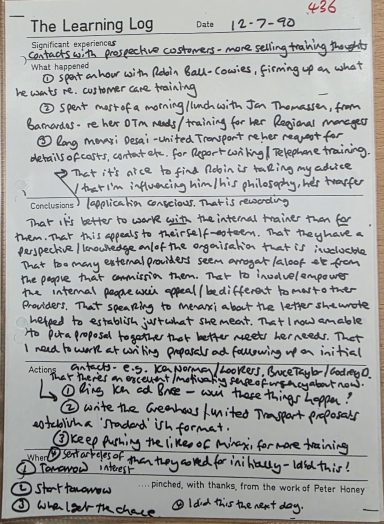 436
The Learning Log Date 12-7-90
Significant experiences
Contacts with prospective customers - more selling training thoughts
What happened
① Spent an hour with Robin Ball - Cowies, firming up on what
he wants re. customer care training
② Spent most of a morning/lunch with Jan Thomassen, from
Barnardos - re her OTM needs/training for her Regional managers
③ Rang Menaxi Desai - United Transport re her request for
details of costs, content etc. for Report Writing/Telephone training.
That it's nice to find Robin is taking my advice
/that I'm influencing him/his philosophy, he's transfer
Conclusions /application conscious. That is rewarding
That it's better to work with the internal trainer than for
them. That this appeals to their self-esteem. That they have a
perspective/knowledge on/of the organisation that is invaluable
That too many external providers seem arrogant/aloof etc from
the people that commission them. That to involve/empower
the internal people will appeal/be different to most other
Providers. That speaking to Menaxi about the letter she wrote
helped to establish just what she meant. That I now am able
to put a proposal together that better meets her needs. That
I need to work at writing proposals and following up on initial
Actions contacts - e.g. Ken Norman/Lookers, Bruce Taylor/Godfrey D.
That there's an excellent/motivating sense of urgency about now.
① Ring Ken and Bruce - will these things happen?
② Write the Greenhous/United Transport proposals
establish a 'Standard' ish format.
③ Keep pushing the likes of Menaxi for more training
When ④ Sent articles of than they asked for initially - I did this!
① Tomorrow interest
② Start tomorrow .... pinched, with thanks, from the work of Peter Honey
③ When I get the chance ④ I did this the next day.